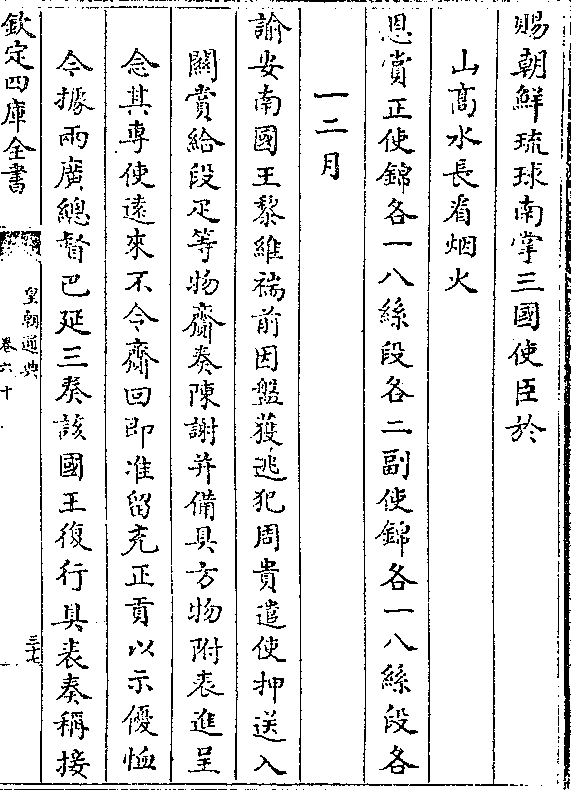 賜朝鮮琉球南掌三國使臣於
山髙水長看烟火
恩賞正使錦各一八絲段各二副使錦各一八絲段各
一二月
諭安南國王黎維褍前因盤獲逃犯周貴遣使押送入
關賞給段疋等物齎奏陳謝并備具方物附表進呈
念其專使遠來不令齎回即准留充正貢以示優恤
今據兩廣總督巴延三奏該國王復行具表奏稱接
欽定四庫全書
皇朝通典
卷六十
三十七